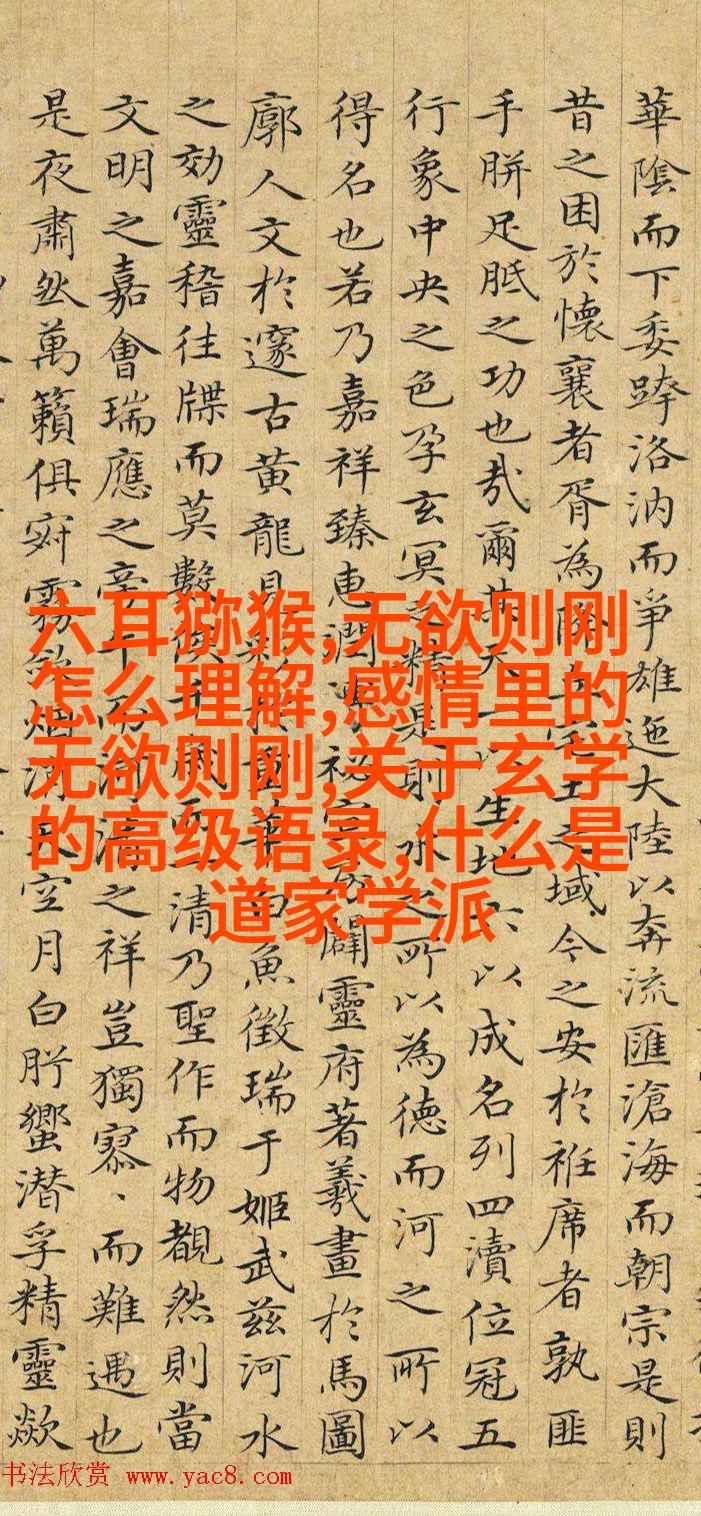 華陰而下委洛汭而爭雄迤大陸以奔流匯滄海而朝宗是則
昔之困於懷襄者胥為降丘宅土之域今之安於袵席者孰匪
手胼足胝之功也哉爾其天一以生地六以成名列四瀆位冠五
行象中央之色孕玄冥之精是則水之所以為德而河之所以
得名也若乃嘉祥臻惠潤祕闢靈府著羲畫於馬圖
廓人文於邃古黃龍見白魚徵瑞于姬武茲河水
之効靈稽往牒而莫數俟千歲而一清乃聖作而物覩然則當
文明之嘉會瑞應之旁午而河清之祥豈獨寡、而難遇也
是夜肅然萬籟俱寂霧斂烟消天空月白肸蠁潛孚精靈歘
六耳猕猴,无欲则刚
怎么理解,感情里的
无欲则刚,关于玄学
的高级语录,什么是
道家学派
书法欣赏 www.yac8.com